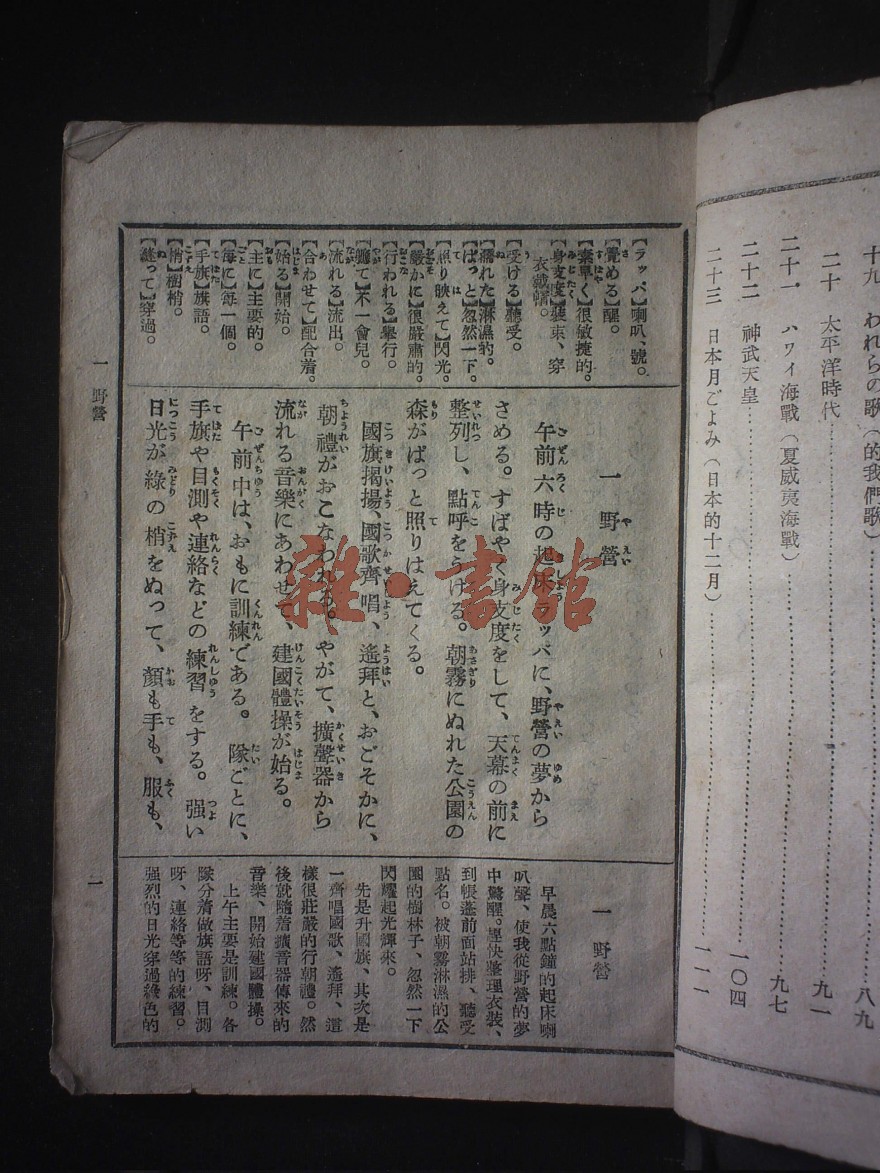 十九 われらの歌（的我們歌）……八九
二十 太平洋時代……九一
二十一 ハワイ海戰（夏威夷海戰）……九七
二十二 神武天皇……一〇四
二十三 日本月ごよみ（日本的十二月）……一一一
【ラッパ】喇叭、號。
【覺める】醒。
【素早く】很敏捷的。
【身支度】裝束、穿
衣裁幘。
【受ける】聽受。
【濡れた】淋濕的。
【ぱっと】忽然一下。
【照り映えて】閃光。
【嚴かに】很嚴肅的。
【行われる】擧行。
【軈て】不一會兒。
【流れる】流出。
【合わせて】配合着。
【始る】開始。
【主に】主要的。
【每に】每一個。
【手旗】旗語。
【梢】樹梢。
【縫って】穿過。
一 野營
午前六時の起床ラッパに、野營の夢から
さめる。すばやく身支度をして、天幕の前に
整列し、點呼をうける。朝霧にぬれた公園の
森がぱっと照りはえてくる。
國旗揭揚、國歌齊唱、遙拜と、おごそかに、
朝禮がおこなわれる。やがて、擴聲器から
流れる音樂にあわせて、建國體操が始る。
午前中は、おもに訓練である。隊ごとに、
手旗や目測や連絡などの練習をする。强い
日光が綠の梢をぬって、顏も手も、服も、
一 野營
早晨六點鐘的起床喇
叭聲、使我從野營的夢
中驚醒。趕快整理衣裝、
到帳蓬前面站排、聽受
點名。被朝霧淋濕的公
園的樹林子、忽然一下
閃耀起光輝來。
先是升國旗、其次是
一齊唱國歌、遙拜、這
樣很莊嚴的行朝禮。然
後就隨着擴音器傳來的
音樂、開始建國體操。
上午主要是訓練。各
隊分着做旗語呀、目測
呀、連絡等等的練習。
强烈的日光穿過綠色的
一 野營
一
雜·書館